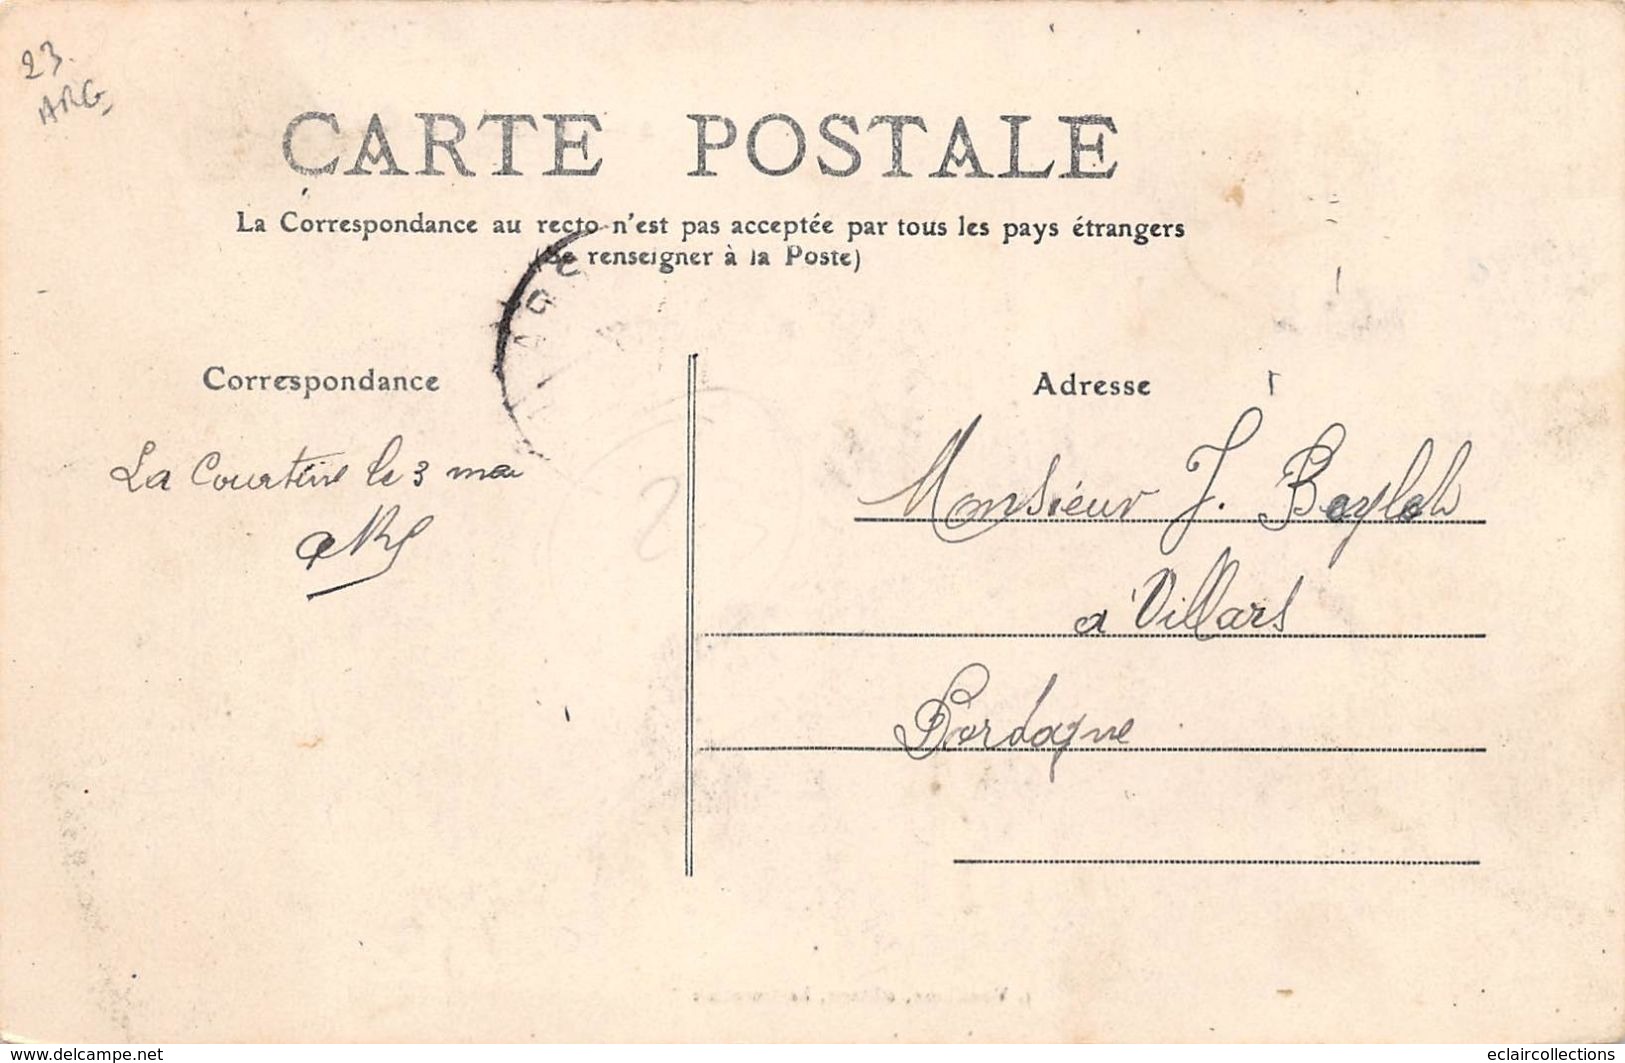 23.
ARG
CARTE POSTALE
La Correspondance au recto n'est pas acceptée par tous les pays étrangers
(Se renseigner à la Poste)
Correspondance
Adresse
La Courtine le 3 mai
Monsieur J. Beylot
a Villars
Dordogne
www.delcampe.net
eclaircollections